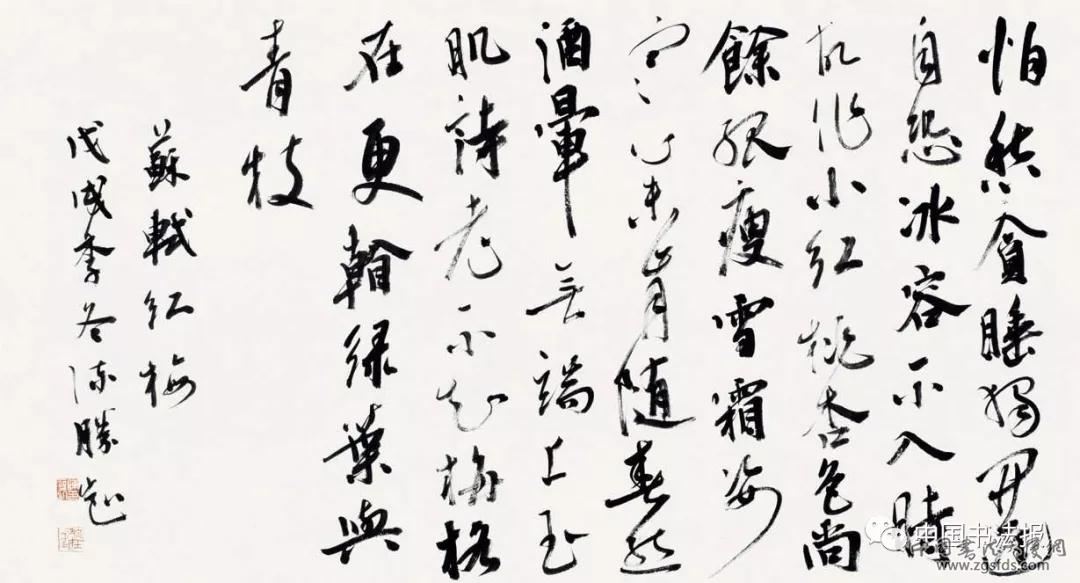 怕愁貪睡獨開遲
自恐冰容不入時
故作小紅桃杏色尚
餘孤瘦雪霜姿
寒心未肯隨春態
酒暈無端上玉
肌詩老不知梅格
在更看綠葉與
青枝
蘇軾紅梅
戊戌季冬勝
中国书法报
www.zgsfds.com